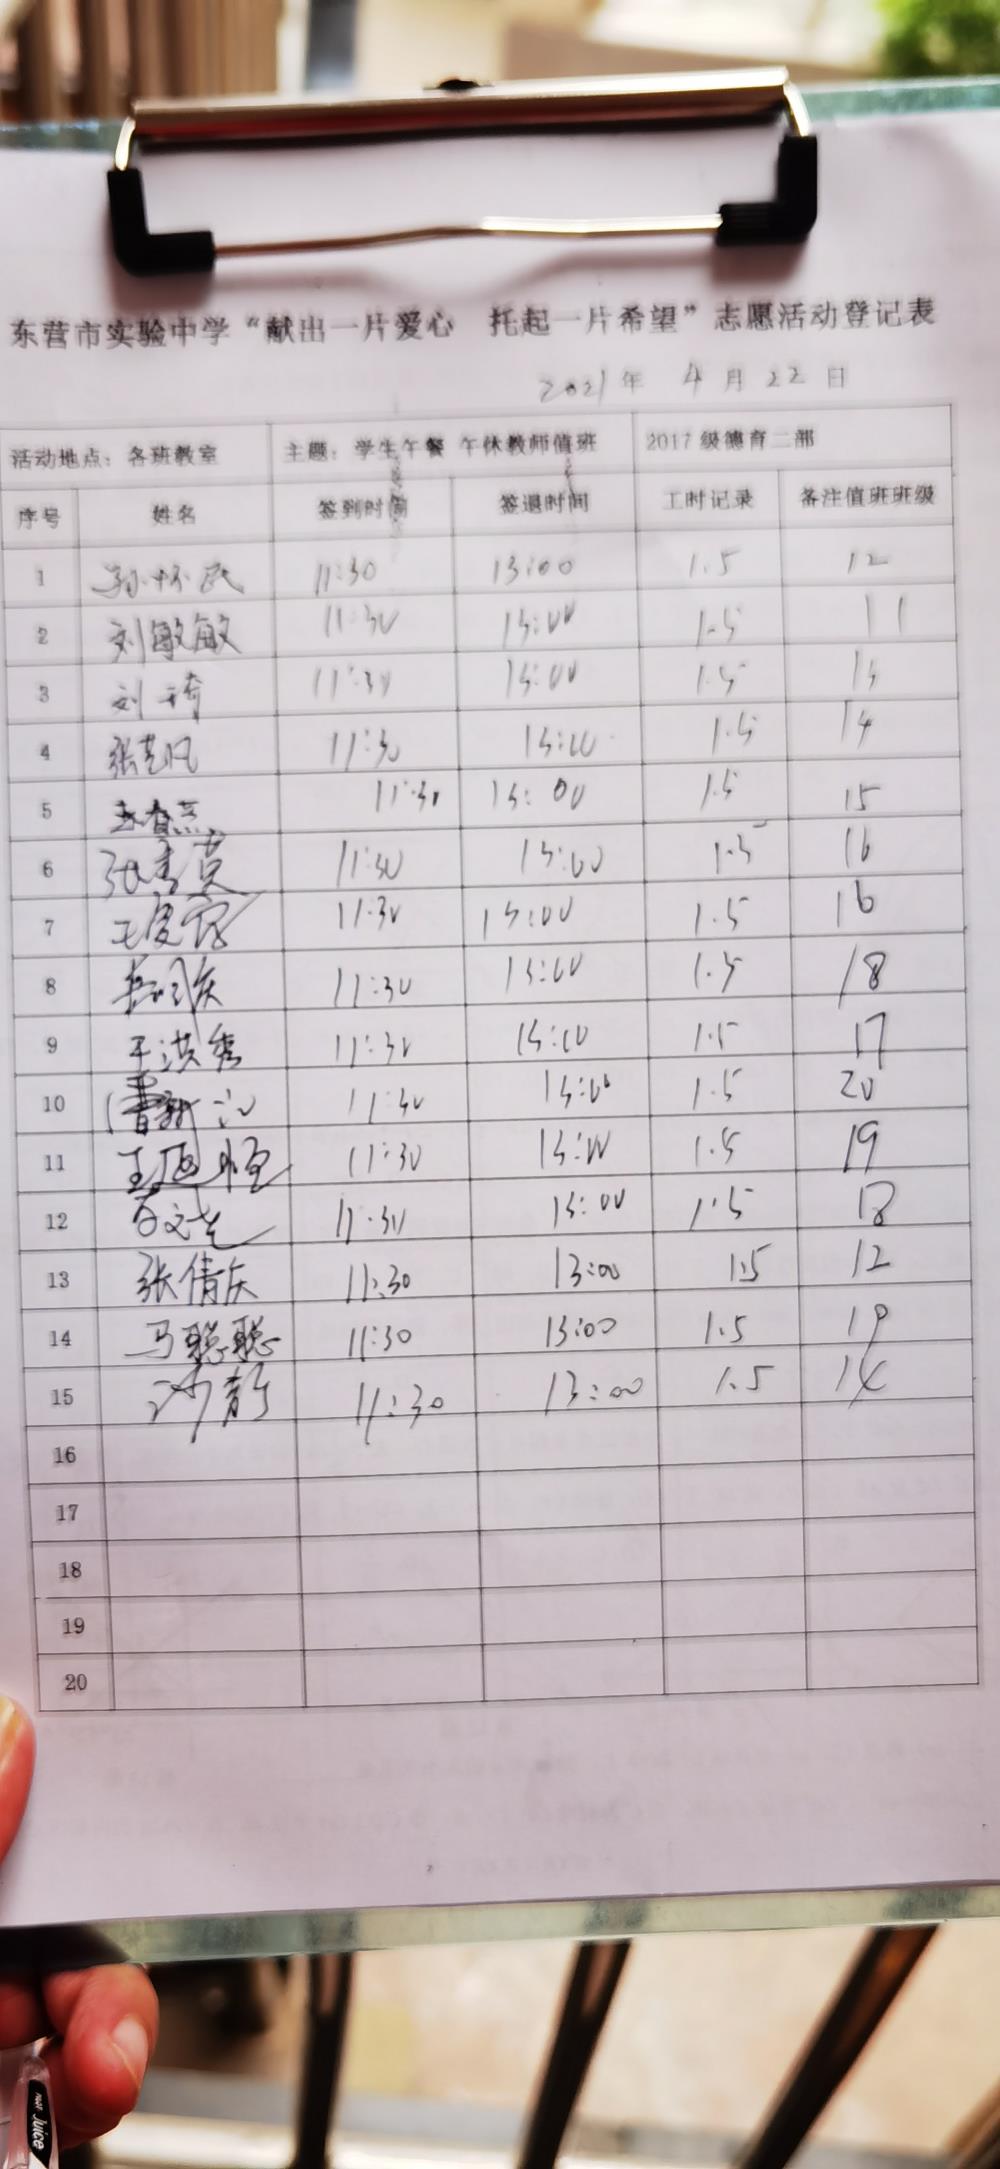 东营市实验中学“献出一片爱心 托起一片希望”志愿活动登记表
2021年 4月22日
活动地点：各班教室 主题：学生午餐 午休教师值班 2017级德育二部
序号 姓名 签到时间 签退时间 工时记录 备注值班班级
1 孙怀民 11:30 13:00 1.5 12
2 刘敏敏 11:30 13:00 1.5 11
3 刘琦 11:30 13:00 1.5 13
4 11:30 13:00 1.5 14
5 11:30 13:00 1.5 15
6 张秀英 11:30 13:00 1.5 16
7 11:30 13:00 1.5 16
8 11:30 13:00 1.5 18
9 王洪秀 11:30 13:00 1.5 17
10 11:30 13:00 1.5 20
11 11:30 13:00 1.5 19
12 11:30 13:00 1.5 18
13 张倩庆 11:30 13:00 1.5 12
14 马聪聪 11:30 13:00 1.5 19
15 11:30 13:00 1.5 14
16
17
18
19
20
Juice